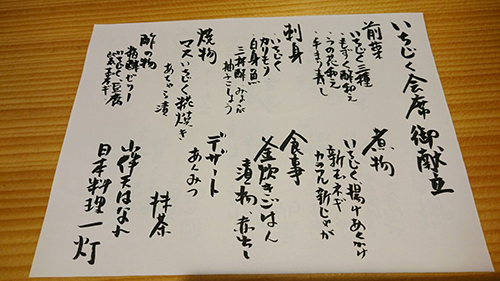 いちじく会席 御献立
前菜
いちじく三種
もずく酢和え
うの花和え
手まり寿し
刺身
いちじく
かりもり
白身魚
三杯酢 みょうが
柚子こしょう
焼物
マス いちじく糀焼き
あちゃら漬
酢の物
梅酢ゼリー
いちじく、豆腐
煮物
いちじく揚げあんかけ
新玉ネギ
カツオ、新じゃが
食事
釜炊きごはん
漬物 赤出し
デザート
あんみつ
抹茶
小伴天はなれ
日本料理 一灯